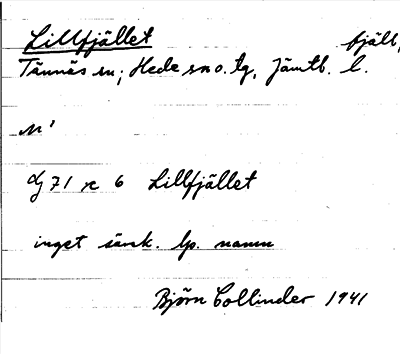 Lillfjället fjäll,
Tännäs sn; Hede sn o. tg, Jämtl. l.
N'
dj 71 x 6 Lillfjället
inget särsk. lp. namn
Björn Collinder 1941